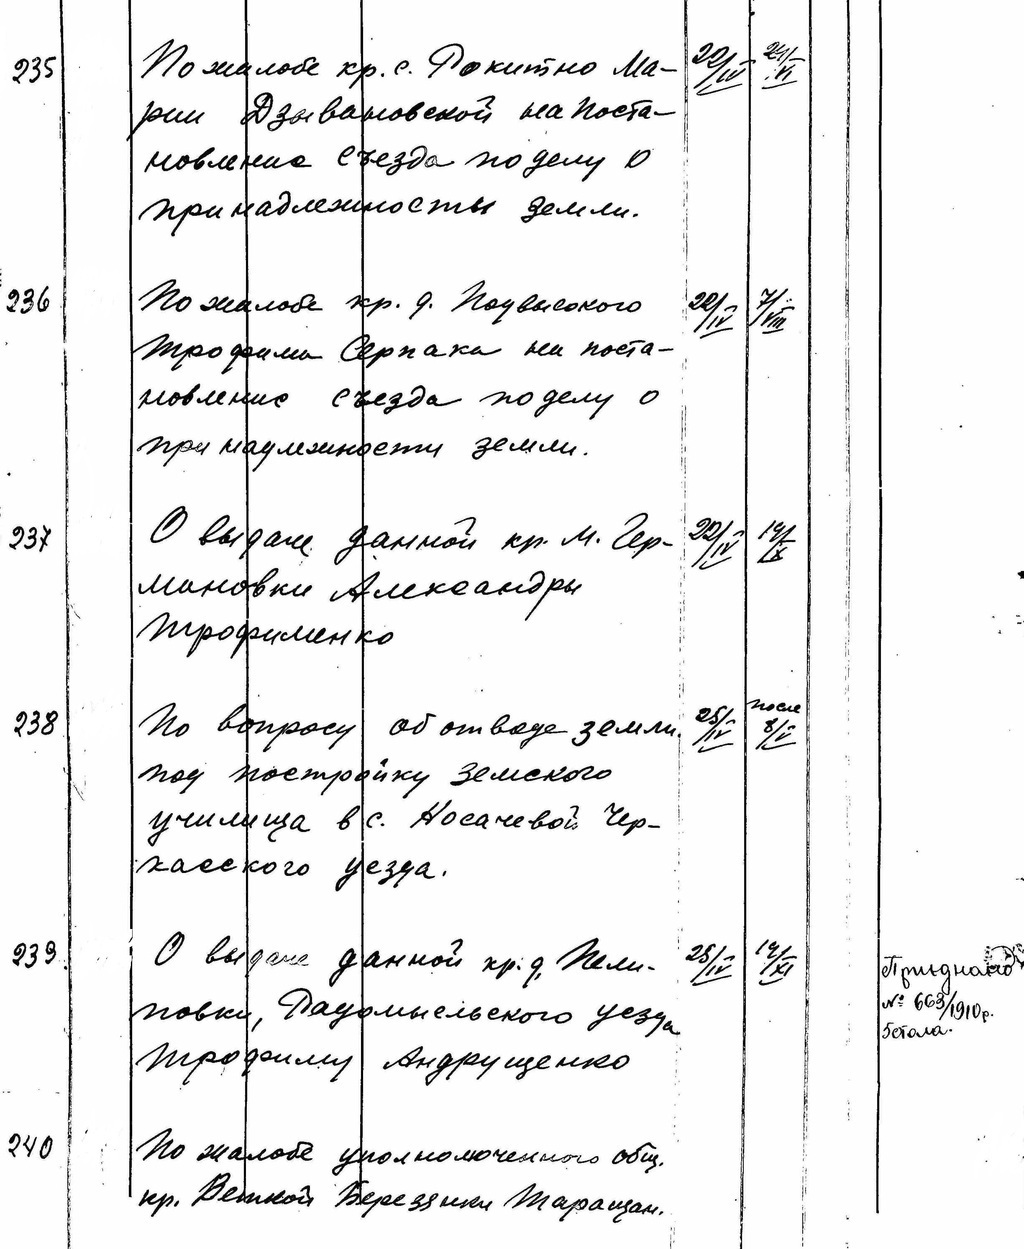 235 По жалобе кр. с. Рокитно Ма- 22/IV 24/VI
рии Дзывановской на поста-
новление съезда по делу о
принадлежности земли.
236 По жалобе кр. д. Подвысокого 22/IV 7/VIII
Трофима Серпака на поста-
новление съезда по делу о
принадлежности земли.
237 О выдаче данной кр. м. Гер- 22/IV 14/X
мановки Александры
Трофименко
238 По вопросу об отводе земли 25/IV после 8/V
под постройку земского
училища в с. Носачевой Чер-
касского уезда.
239 О выдаче данной кр. д. Пили- 25/IV 14/XI
повки, Радомысльского уезда
Трофиму Андрущенко
Приєднано
№ 663/1910 р.
5 стола.
240 По жалобе уполномоченного общ.
кр. Березянки Таращан.